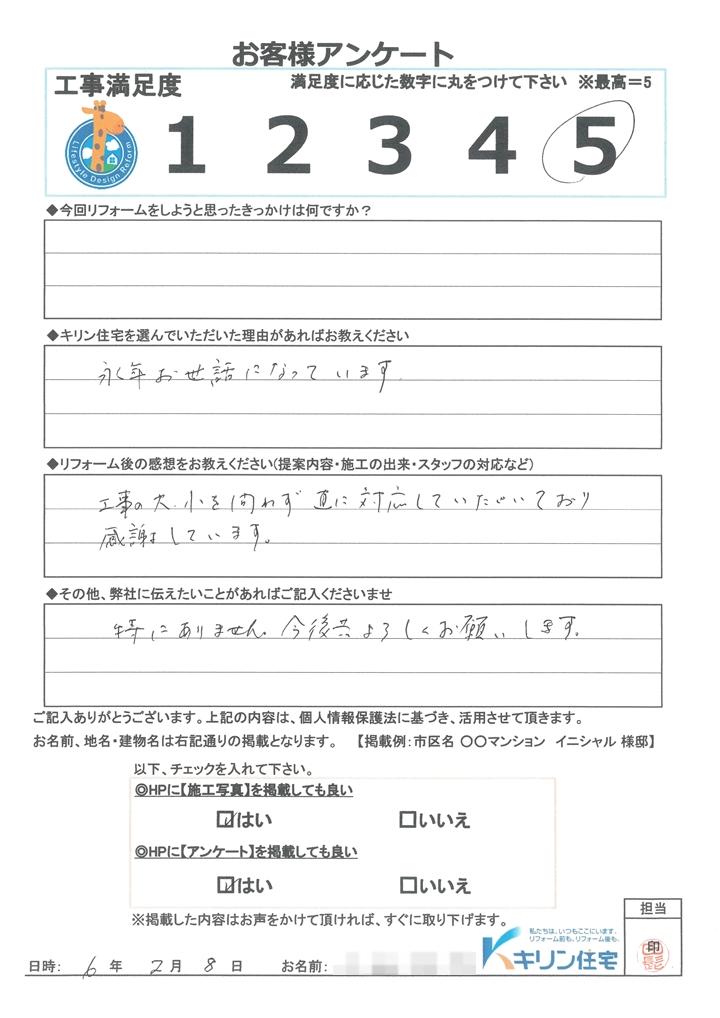 お客様アンケート
工事満足度 満足度に応じた数字に丸をつけて下さい ※最高＝5
Lifestyle Design Reform
1 2 3 4 5
◆今回リフォームをしようと思ったきっかけは何ですか？
◆キリン住宅を選んでいただいた理由があればお教えください
永年お世話になっています
◆リフォーム後の感想をお教えください(提案内容・施工の出来・スタッフの対応など)
工事の大、小を問わず直に対応していただいており
感謝しています。
◆その他、弊社に伝えたいことがあればご記入くださいませ
特にありません。今後共よろしくお願いします。
ご記入ありがとうございます。上記の内容は、個人情報保護法に基づき、活用させて頂きます。
お名前、地名・建物名は右記通りの掲載となります。 【掲載例：市区名 〇〇マンション イニシャル 様邸】
以下、チェックを入れて下さい。
◎HPに【施工写真】を掲載しても良い
☑はい □いいえ
◎HPに【アンケート】を掲載しても良い
☑はい □いいえ
※掲載した内容はお声をかけて頂ければ、すぐに取り下げます。
担当
印
私たちは、いつもここにいます。
リフォーム前も、リフォーム後も。
キリン住宅
日時： 6 年 2 月 8 日 お名前：